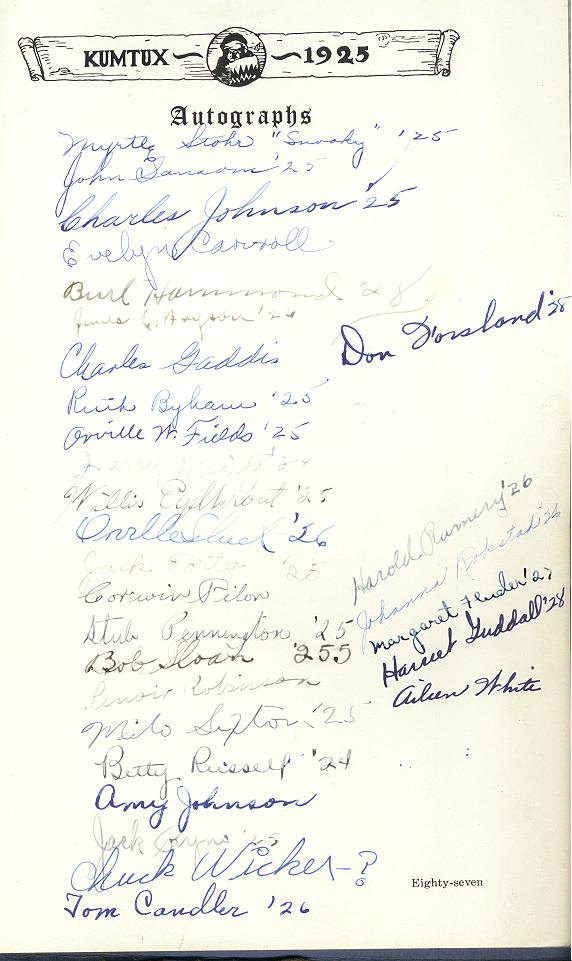 KUMTUX ~ ~ 1925
Autographs
Myrtle Stohr "Snooky" '25
John Sansom '25
Charles Johnson '25
Evelyn Carroll
Burl Hammond '28
'26
Don Forsland '28
Charles Gaddis
Ruth Byham '25
Orville W. Fields '25
Harry '24
Willis '25
Orville '26
Harold Rumery '26
Jack Porter '25
Johanna Rokstad '26
Corwin Pilon
Margaret '27
Stub Pennington '25
Harriet Guddall '28
Bob Sloan '255
Aileen White
Lenoir Robinson
Milo Sexton '25
Betty Russell '24
Amy Johnson
Jack '25
Chuck Wicker - ?
Tom Candler '26
Eighty-seven